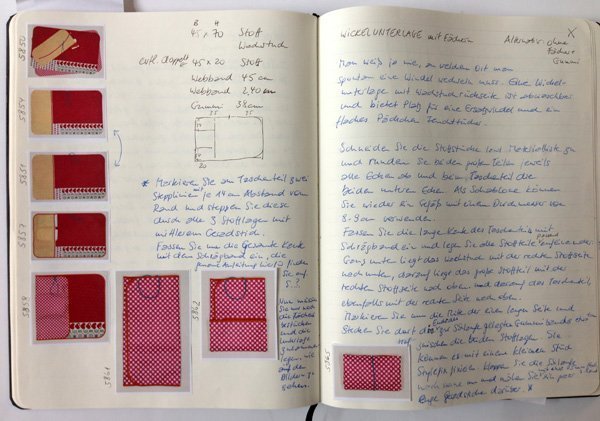 B H
45 x 70 Stoff
Wachstuch
evtl. doppelt 45 x 20 Stoff
Webband 45 cm
Webband 2,40 cm
Gummi
20
5850
5854
5851
5857
5858
5861
5862
* Markieren Sie am Taschenteil zwei
Stepplinien mit je 14 cm Abstand vom
Rand und steppen Sie diese
durch alle 3 Stofflagen mit
mittlerem Geradstich.
Fassen Sie nun die gesamte Kante
mit dem Schrägband ein, die
genaue Anleitung hierfür finden
Sie auf
S. ?
Nun müssen
Sie nur noch
die Fächer
bestücken
und die
Unterlage
zusammen
legen, wie
auf den
Bildern zu
sehen.
WICKELUNTERLAGE mit Fächern
Alternativ: ohne
Fächer
Gummi
X
Man weiß ja nie, an welchem Ort man
spontan eine Windel wechseln muss. Eine Wickel-
unterlage mit Wachstuchrückseite ist abwaschbar
und bietet Platz für eine Ersatzwindel und ein
flaches Päckchen Feuchttücher.
Schneiden Sie die Stoffstücke laut Materialliste zu
und runden Sie bei den großen Teilen jeweils
alle Ecken ab und beim Taschenteil die
beiden unteren Ecken. Als Schablone können
Sie wieder ein Gefäß mit einem Durchmesser von
8-9 cm verwenden.
Fassen Sie die lange Kante des Taschenteils mit
Schrägband ein und legen Sie die Stoffteile passend aufeinander:
Ganz unten liegt das Wachstuch mit der rechten Stoffseite
nach unten, darauf liegt das große Stoffteil mit der
rechten Stoffseite nach oben und darauf das Taschenteil,
ebenfalls mit der rechten Seite nach oben.
Markieren Sie nun die Mitte der einen langen Seite und
stecken Sie dort das zur Schlaufe gelegte Gummiband
zwischen die beiden Stofflagen. Sie
können es mit einem kleinen Stück
Stylefix fixieren. Klappen Sie die Schlaufe
nach und nähen Sie ein paar
enge Geradstiche darüber. *
5865